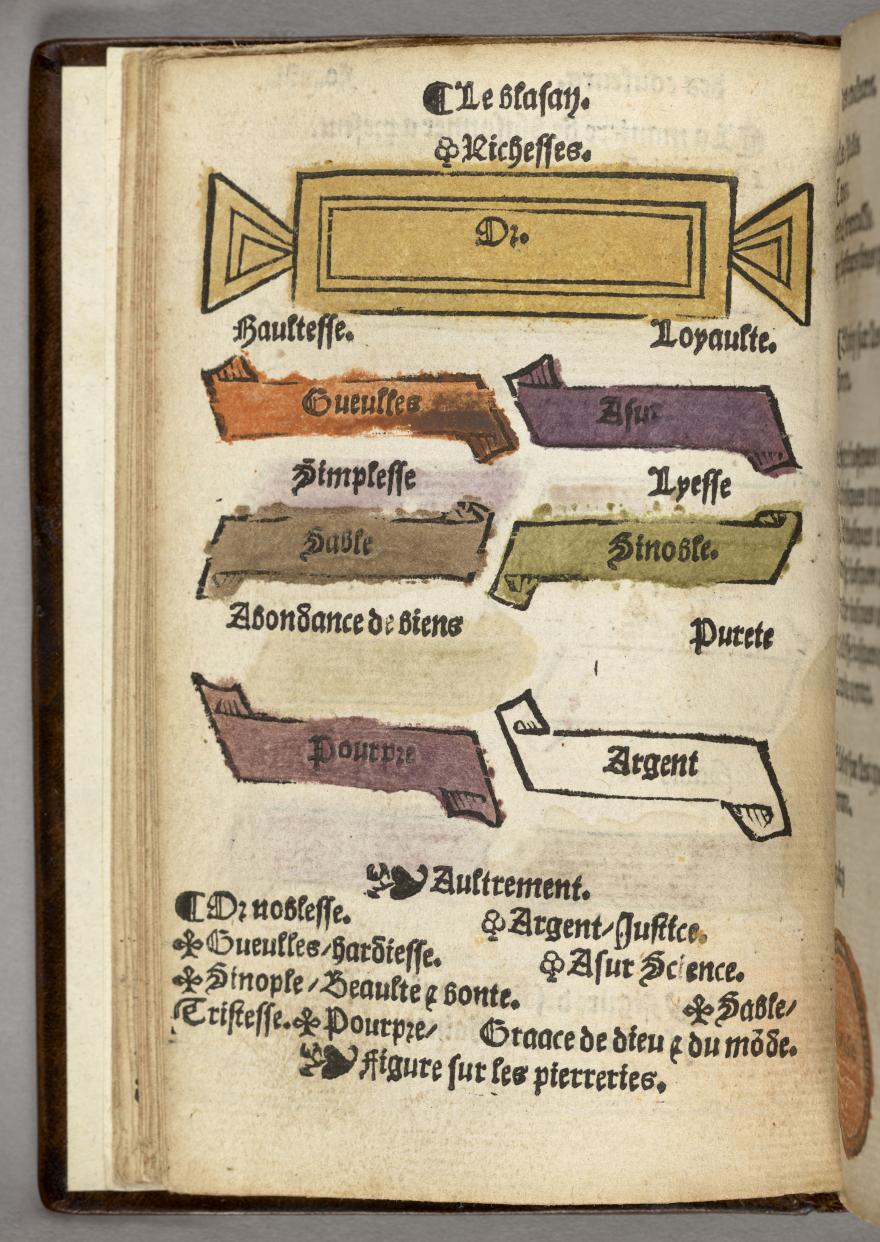 Le blason.
Richesses.
Or.
Haultesse. Loyaulte.
Gueulles Asur
Simplesse Lyesse
Sable Sinoble.
Abondance de biens Purete
Pourpre Argent
Aultrement.
Or noblesse. Argent/Justice.
Gueulles/hardiesse. Asur Science.
Sinople/Beaulte ⁊ bonte. Sable/
Tristesse. Pourpre/ Graace de dieu ⁊ du mõde.
Figure sur les pierreries.